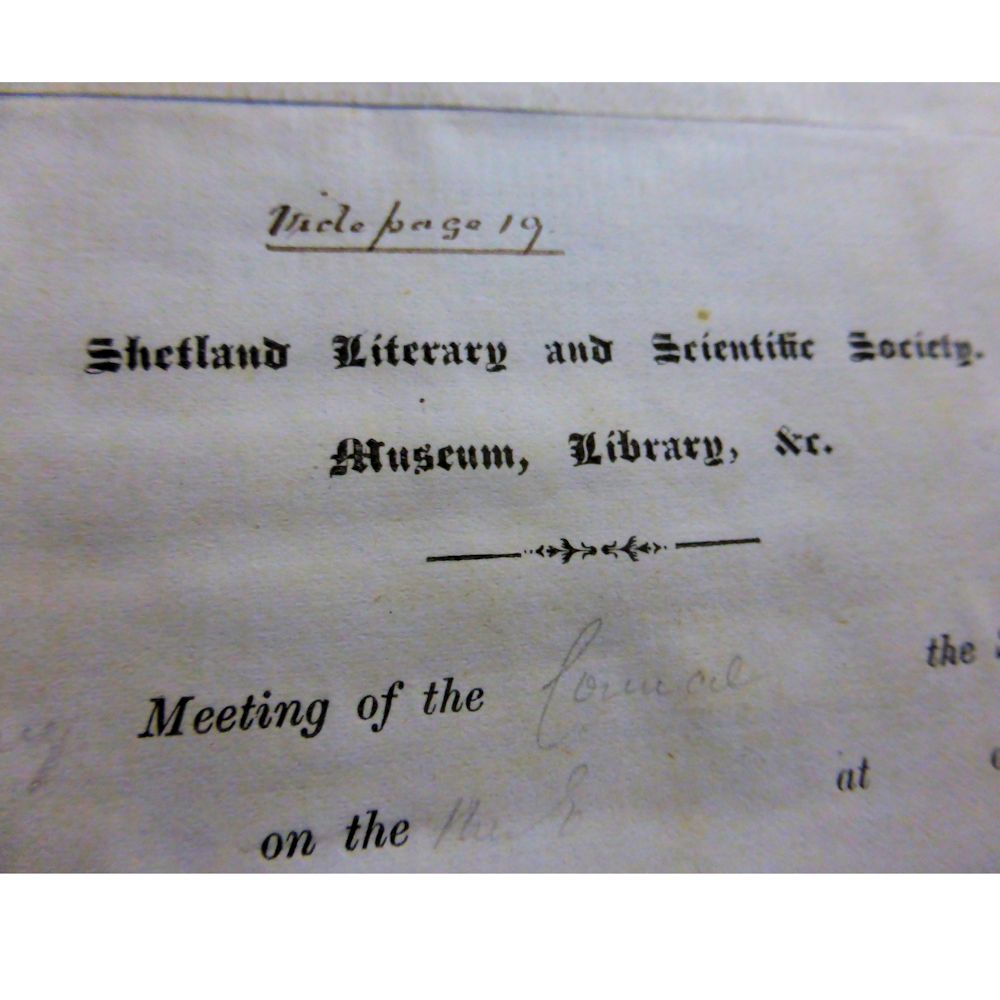 Vide page 19.
Shetland Literary and Scientific Society.
Museum, Library, &c.
Meeting of the Council the
on the at